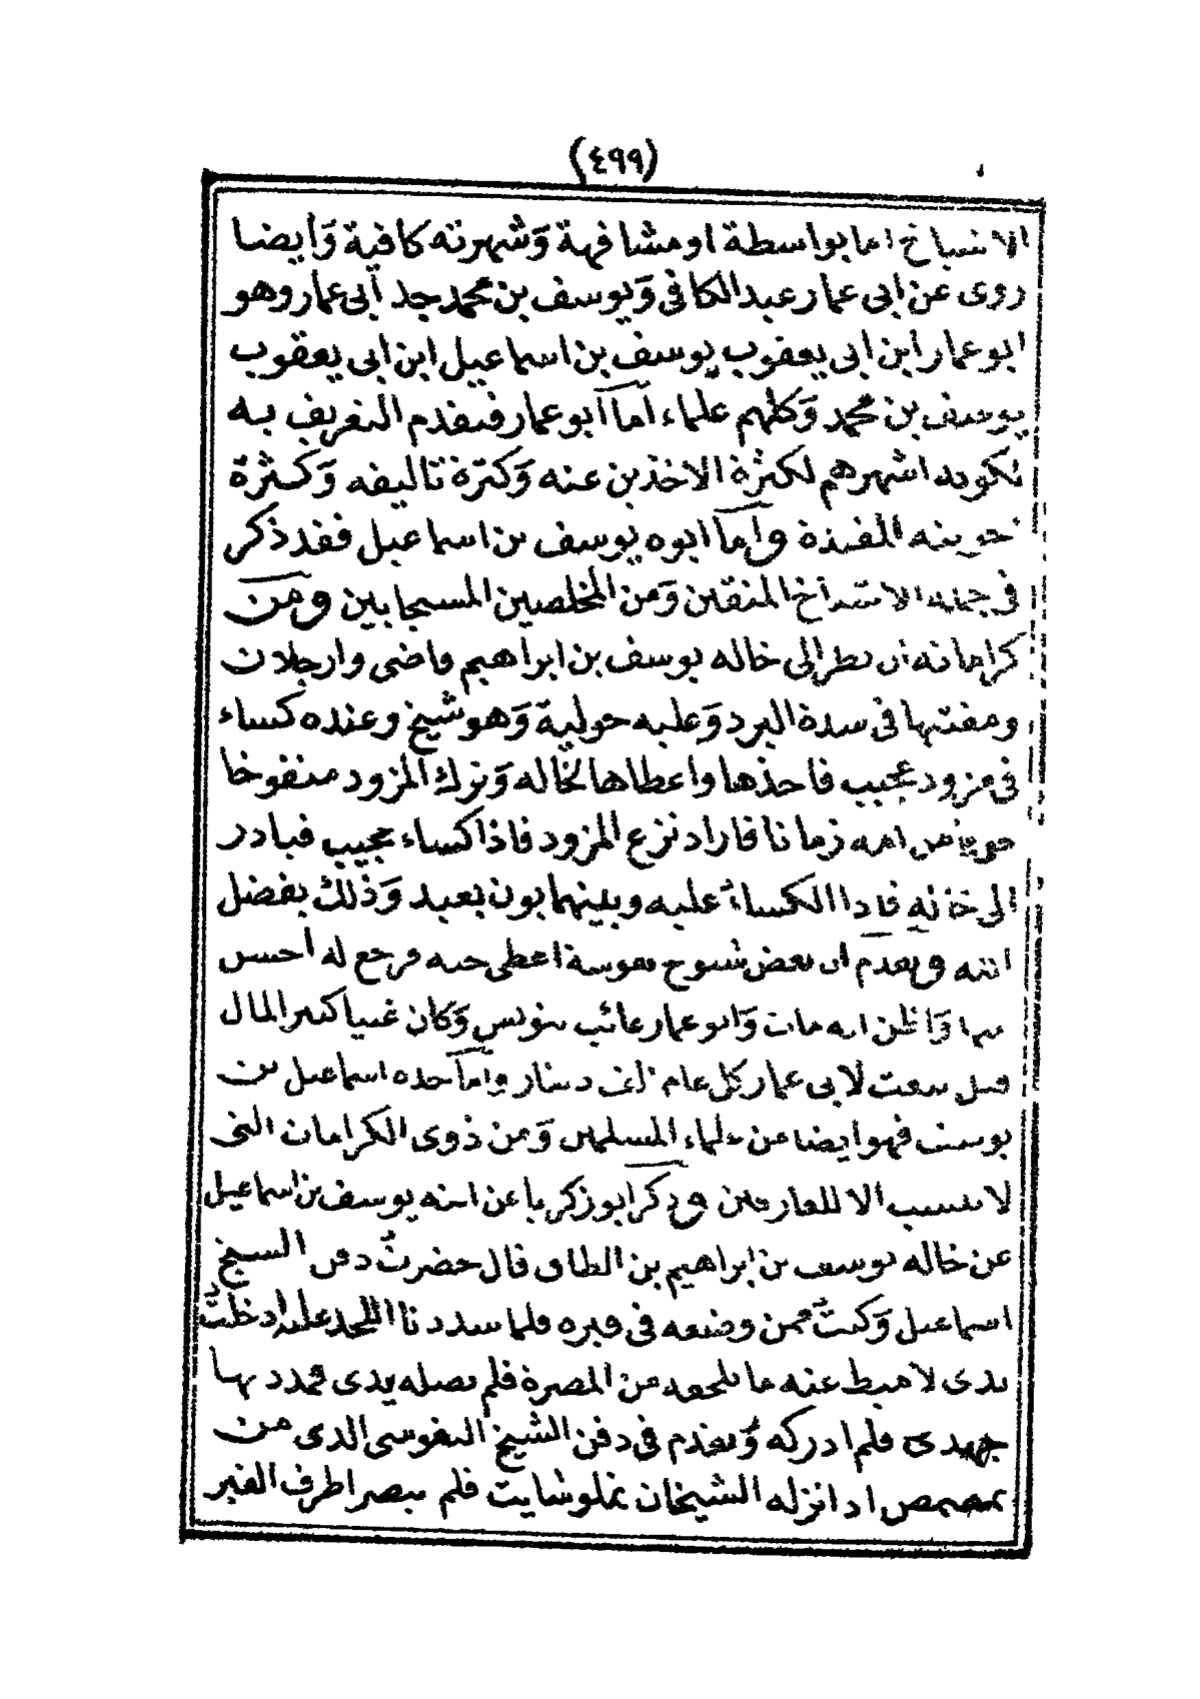 (٤٩٩)
الاشياخ اما بواسطة او مشافهة وَشهرته كافية وَايضا
روى عن ابى عمار عبد الكافى وَيوسف بن محمد جد ابى عمار وهو
ابو عمار ابن ابى يعقوب يوسف بن اسماعيل ابن ابى يعقوب
يوسف بن محمد وَكلهم علماء اما ابو عمار فتقدم التعريف به
لكونه اشهرهم لكثرة الاخذين عنه وَكثرة تاليفه وَكثرة
المفيدة واما ابوه يوسف بن اسماعيل فقد ذكر
فى جملة الاشياخ المتقين وَمن المخلصين المستجابين ومن
كراماته ان نظر الى خاله يوسف بن ابراهيم قاضى وارجلان
ومفتيها فى شدة البرد وَعليه حولية وَهو شيخ وعنده كساء
فى مزود عجيب فاخذها واعطاها لخاله وَترك المزود منفوخا
خوفا من امه زمانا فاراد نزع المزود فاذا كساء عجيب فبادر
الى خاله فاذا الكساء عليه وبينهما بون بعيد وَذلك بفضل
الله وتقدم ان بعض شيوخ نفوسة اعطى جبه فرجع له احسن
منها وَاظن انه مات وَابو عمار غائب بتونس وَكان غنيا كثير المال
قيل بعث لابى عمار كل عام الف دينار واما جده اسماعيل بن
يوسف فهو ايضا من علماء المسلمين وَمن ذوى الكرامات التى
لا تنسب الا للعارفين وذكر ابو زكريا عن ابنه يوسف بن اسماعيل
عن خاله يوسف بن ابراهيم بن قال حضرتُ دفن الشيخ
اسماعيل وَكنتُ فمن وضعه فى قبره فلما سددنا اللحد عليه ادخلتُ
يدى لاميط عنه ما من المصرة فلم تصله يدى فمددبها
جهدى فلم ادركه وَتقدم فى دفن الشيخ النفوسى الذى من
تمصمص اذ انزله الشيخان بتملوشايت فلم يبصرا طرف القبر